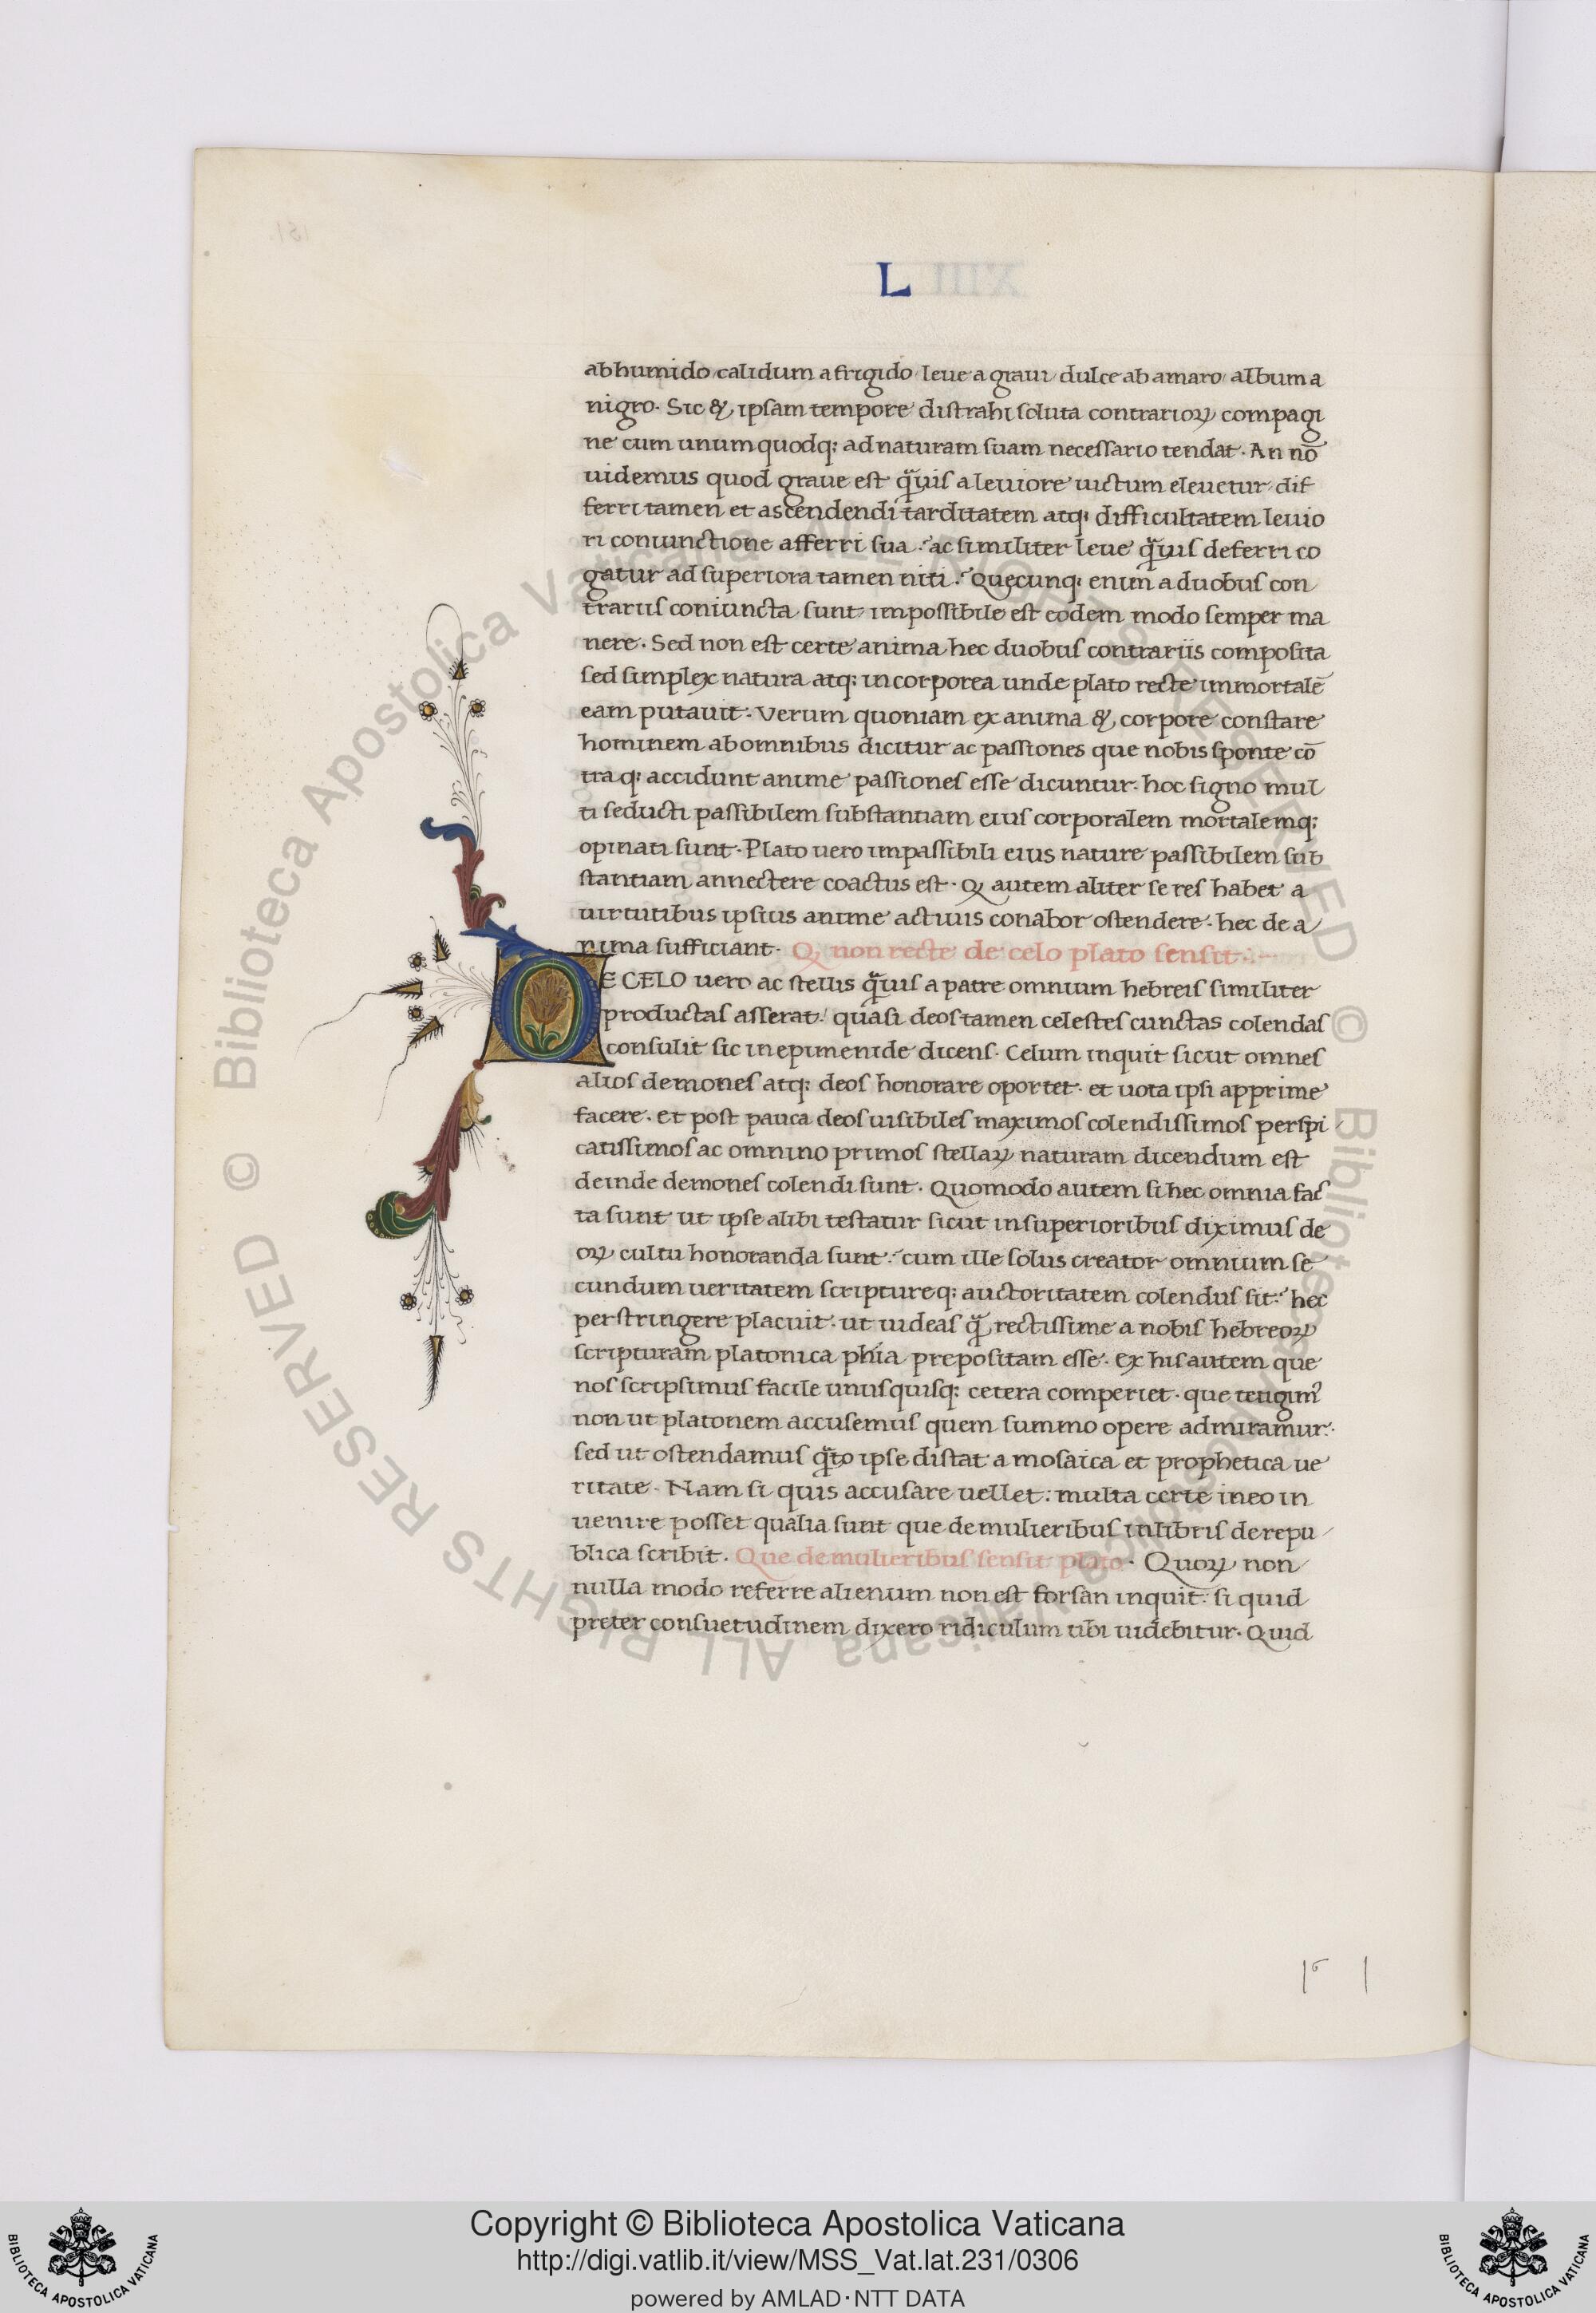 L
ab humido calidum a frigido leue a graui dulce ab amaro album a
nigro. Sic & ipsam tempore distrahi soluta contrarioꝝ compagi
ne cum unumquodqꝫ ad naturam suam necessario tendat. An nō
uidemus quod graue est quis a leuiore uictum eleuetur dif
ferri tamen et ascendendi tarditatem atqꝫ difficultatem leuio
ri coniunctione afferri sua? ac similiter leue quis deferri co
gatur ad superiora tamen niti? Quęcunqꝫ enim a duobus con
trariis coniuncta sunt impossibile est eodem modo semper ma
nere. Sed non est certe anima hec duobus contrariis composita
sed simplex natura atqꝫ incorporea unde plato recte immortalē
eam putauit. Verum quoniam ex anima & corpore constare
hominem ab omnibus dicitur ac passiones que nobis sponte cō
traqꝫ accidunt anime passiones esse dicuntur. hoc signo mul
ti seducti passibilem substantiam eius corporalem mortalemqꝫ
opinati sunt. Plato uero impassibili eius nature passibilem sub
stantiam annectere coactus est. Ꝙ autem aliter se res habet a
uirtutibus ipsius anime actiuis conabor ostendere. hec de a
nima sufficiant. Ꝙ non recte de celo plato sensit.
DE CELO uero ac stellis quis a patre omnium hebreis similiter
productas asserat: quasi deos tamen celestes cunctas colendas
consulit sic in epimenide dicens. Celum inquit sicut omnes
alios demones atqꝫ deos honorare oportet. et uota ipsi apprime
facere. et post pauca deos uisibiles maximos colendissimos perspi
catissimos ac omnino primos stellaꝝ naturam dicendum est
deinde demones colendi sunt. Quomodo autem si hec omnia fac
ta sunt ut ipse alibi testatur sicut in superioribus diximus de
oꝝ cultu honoranda sunt? cum ille solus creator omnium se
cundum ueritatem scriptureqꝫ auctoritatem colendus sit? hec
perstringere placuit. ut uideas q̃ rectissime a nobis hebreoꝝ
scripturam platonica phīa prepositam esse. Ex his autem que
nos scripsimus facile unusquisqꝫ cetera comperiet. que tetigimꝰ
non ut platonem accusemus quem summo opere admiramur.
sed ut ostendamus q̃to ipse distat a mosaica et prophetica ue
ritate. Nam si quis accusare uellet: multa certe in eo in
uenire posset qualia sunt que de mulieribus in libris de repu
blica scribit. Que de mulieribus sensit plato. Quoꝝ non
nulla modo referre alienum non est forsan inquit: si quid
preter consuetudinem dixero ridiculum tibi uidebitur. Quid
© Biblioteca Apostolica Vaticana ALL RIGHTS RESERVED
© Biblioteca Apostolica Vaticana ALL RIGHTS RESERVED
Copyright © Biblioteca Apostolica Vaticana
http://digi.vatlib.it/view/MSS_Vat.lat.231/0306
powered by AMLAD·NTT DATA
BIBLIOTECA APOSTOLICA VATICANA
BIBLIOTECA APOSTOLICA VATICANA